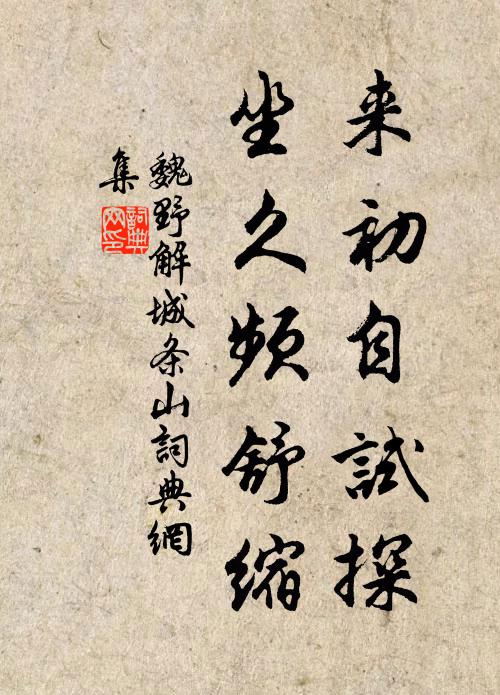 来初自試探
坐久频舒缩
魏野解城条山詞典網
集
詞典網印